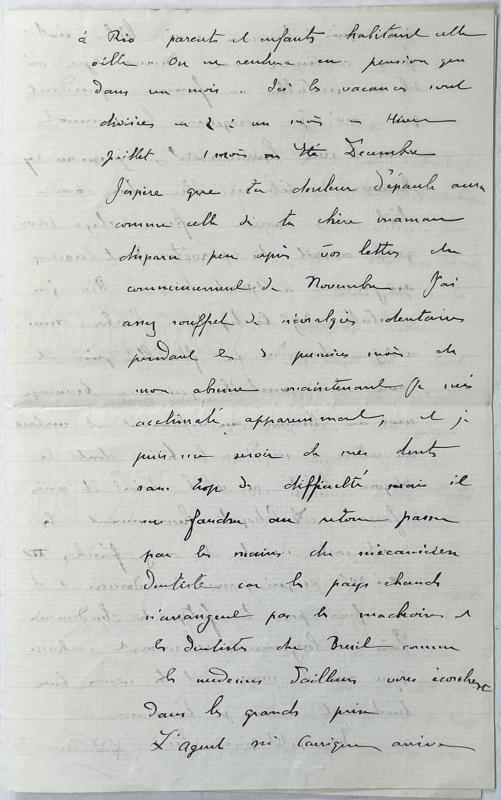 à Rio parents et enfants habitant cette
ville. On ne rentrera en pension que
dans un mois. Ici les vacances sont
divisées en 2 : un mois en Hiver
Juillet 1 mois en Eté Décembre
J'espère que ta douleur d'épaule aura
comme celle de ta chère maman
disparu peu après vos lettres du
commencement de Novembre J'ai
assez souffert de névralgies dentaires
pendant les 3 premiers mois de
mon absence maintenant je suis
acclimaté apparemment, et je
puis me servir de mes dents
sans trop de difficulté mais il
me faudra au retour passer
par les mains du mécanicien
dentiste car les pays chauds
n'arrangent pas les machoires et
les dentistes du Bresil comme
les medecins d'ailleurs vous écorchent
dans les grands prix
L'agent arrive